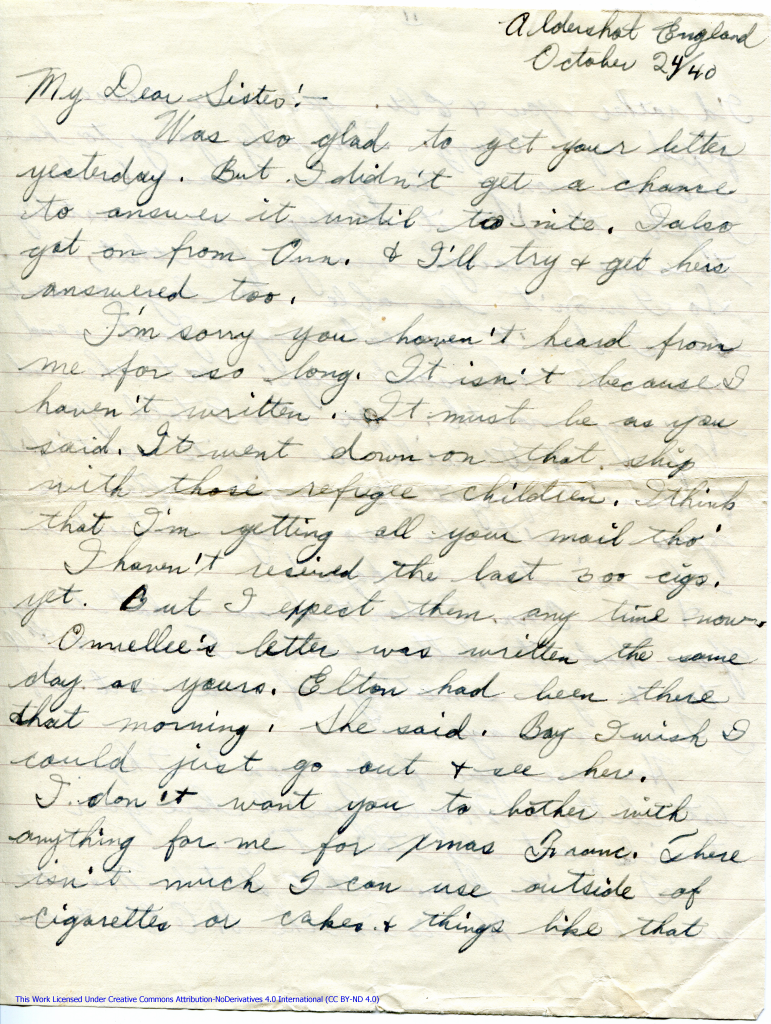 Aldershot England
October 24/40
My Dear Sister:-
Was so glad to get your letter
yesterday. But I didn't get a chance
to answer it until to-nite. I also
got on from Ann. & I'll try & get hers
answered too.
I'm sorry you haven't heard from
me for so long. It isn't because I
haven't written. It must be as you
said. It went down on that ship
with those refugee children. I think
that I'm getting all your mail tho'
I haven't received the last 300 cigs.
yet. But I expect them any time now.
letter was written the same
day as yours. Elton had been there
that morning. She said. Boy I wish I
could just go out & see her.
I don't want you to bother with
anything for me for xmas Franc. There
isn't much I can use outside of
cigarettes or cakes & things like that
This Work Licensed Under Creative Commons Attribution-NoDerivatives 4.0 International (CC BY-ND 4.0)